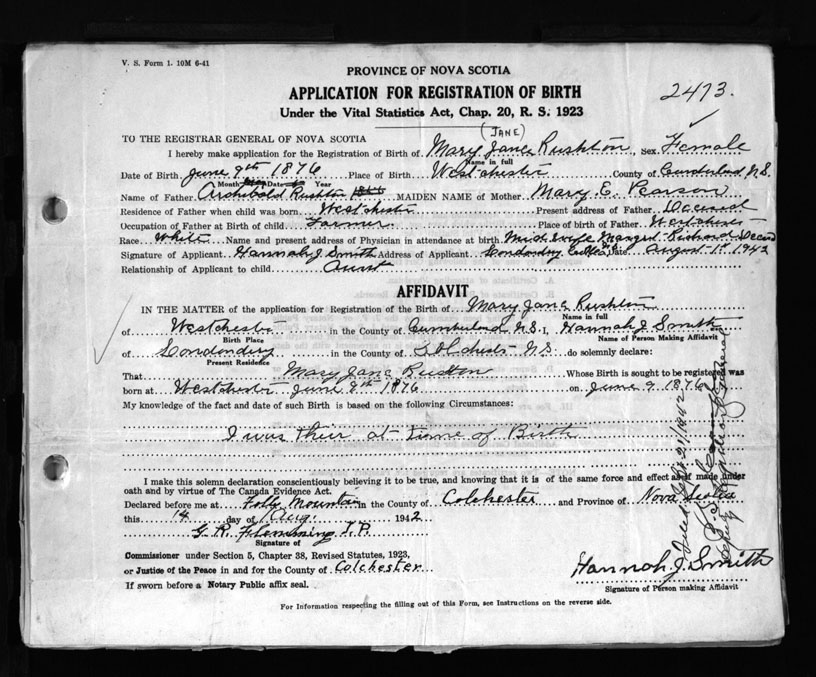 V. S. Form 1. 10M 6-41
PROVINCE OF NOVA SCOTIA
APPLICATION FOR REGISTRATION OF BIRTH
2473.
Under the Vital Statistics Act, Chap. 20, R. S. 1923
(JANE)
TO THE REGISTRAR GENERAL OF NOVA SCOTIA
I hereby make application for the Registration of Birth of Mary Jane Rushton, Sex Female
Name in full
Date of Birth June 9th 1876 Place of Birth Westchester County of Cumberland N.S.
Month Date Year
Name of Father Archibald Rushton MAIDEN NAME of Mother Mary E. Pearson
Residence of Father when child was born Westchester Present address of Father Deceased
Occupation of Father at Birth of child Farmer Place of birth of Father Westchester
Race White Name and present address of Physician in attendance at birth Mid Wife Richard
Signature of Applicant Hannah J. Smith Address of Applicant Londonderry Date August 1st 1942
Relationship of Applicant to child Aunt
AFFIDAVIT
IN THE MATTER of the application for Registration of the Birth of Mary Jane Rushton
Name in full
of Westchester in the County of Cumberland N.S. I, Hannah J. Smith
Birth Place Name of Person Making Affidavit
of Londonderry in the County of N.S. do solemnly declare:
Present Residence
That Mary Jane Rushton Whose Birth is sought to be registered was
born at Westchester June 9th 1876 on June 9 1876
My knowledge of the fact and date of such Birth is based on the following Circumstances:
I was their at time of Birth
I make this solemn declaration conscientiously believing it to be true, and knowing that it is of the same force and effect as if made under
oath and by virtue of The Canada Evidence Act.
Declared before me at Folly Mountain in the County of Colchester and Province of Nova Scotia
this 14 day of Aug. 1942
G. R. Flemming J. P.
Signature of
Commissioner under Section 5, Chapter 38, Revised Statutes, 1923,
or Justice of the Peace in and for the County of Colchester
If sworn before a Notary Public affix seal.
Hannah J. Smith
Signature of Person making Affidavit
For Information respecting the filling out of this Form, see Instructions on the reverse side.